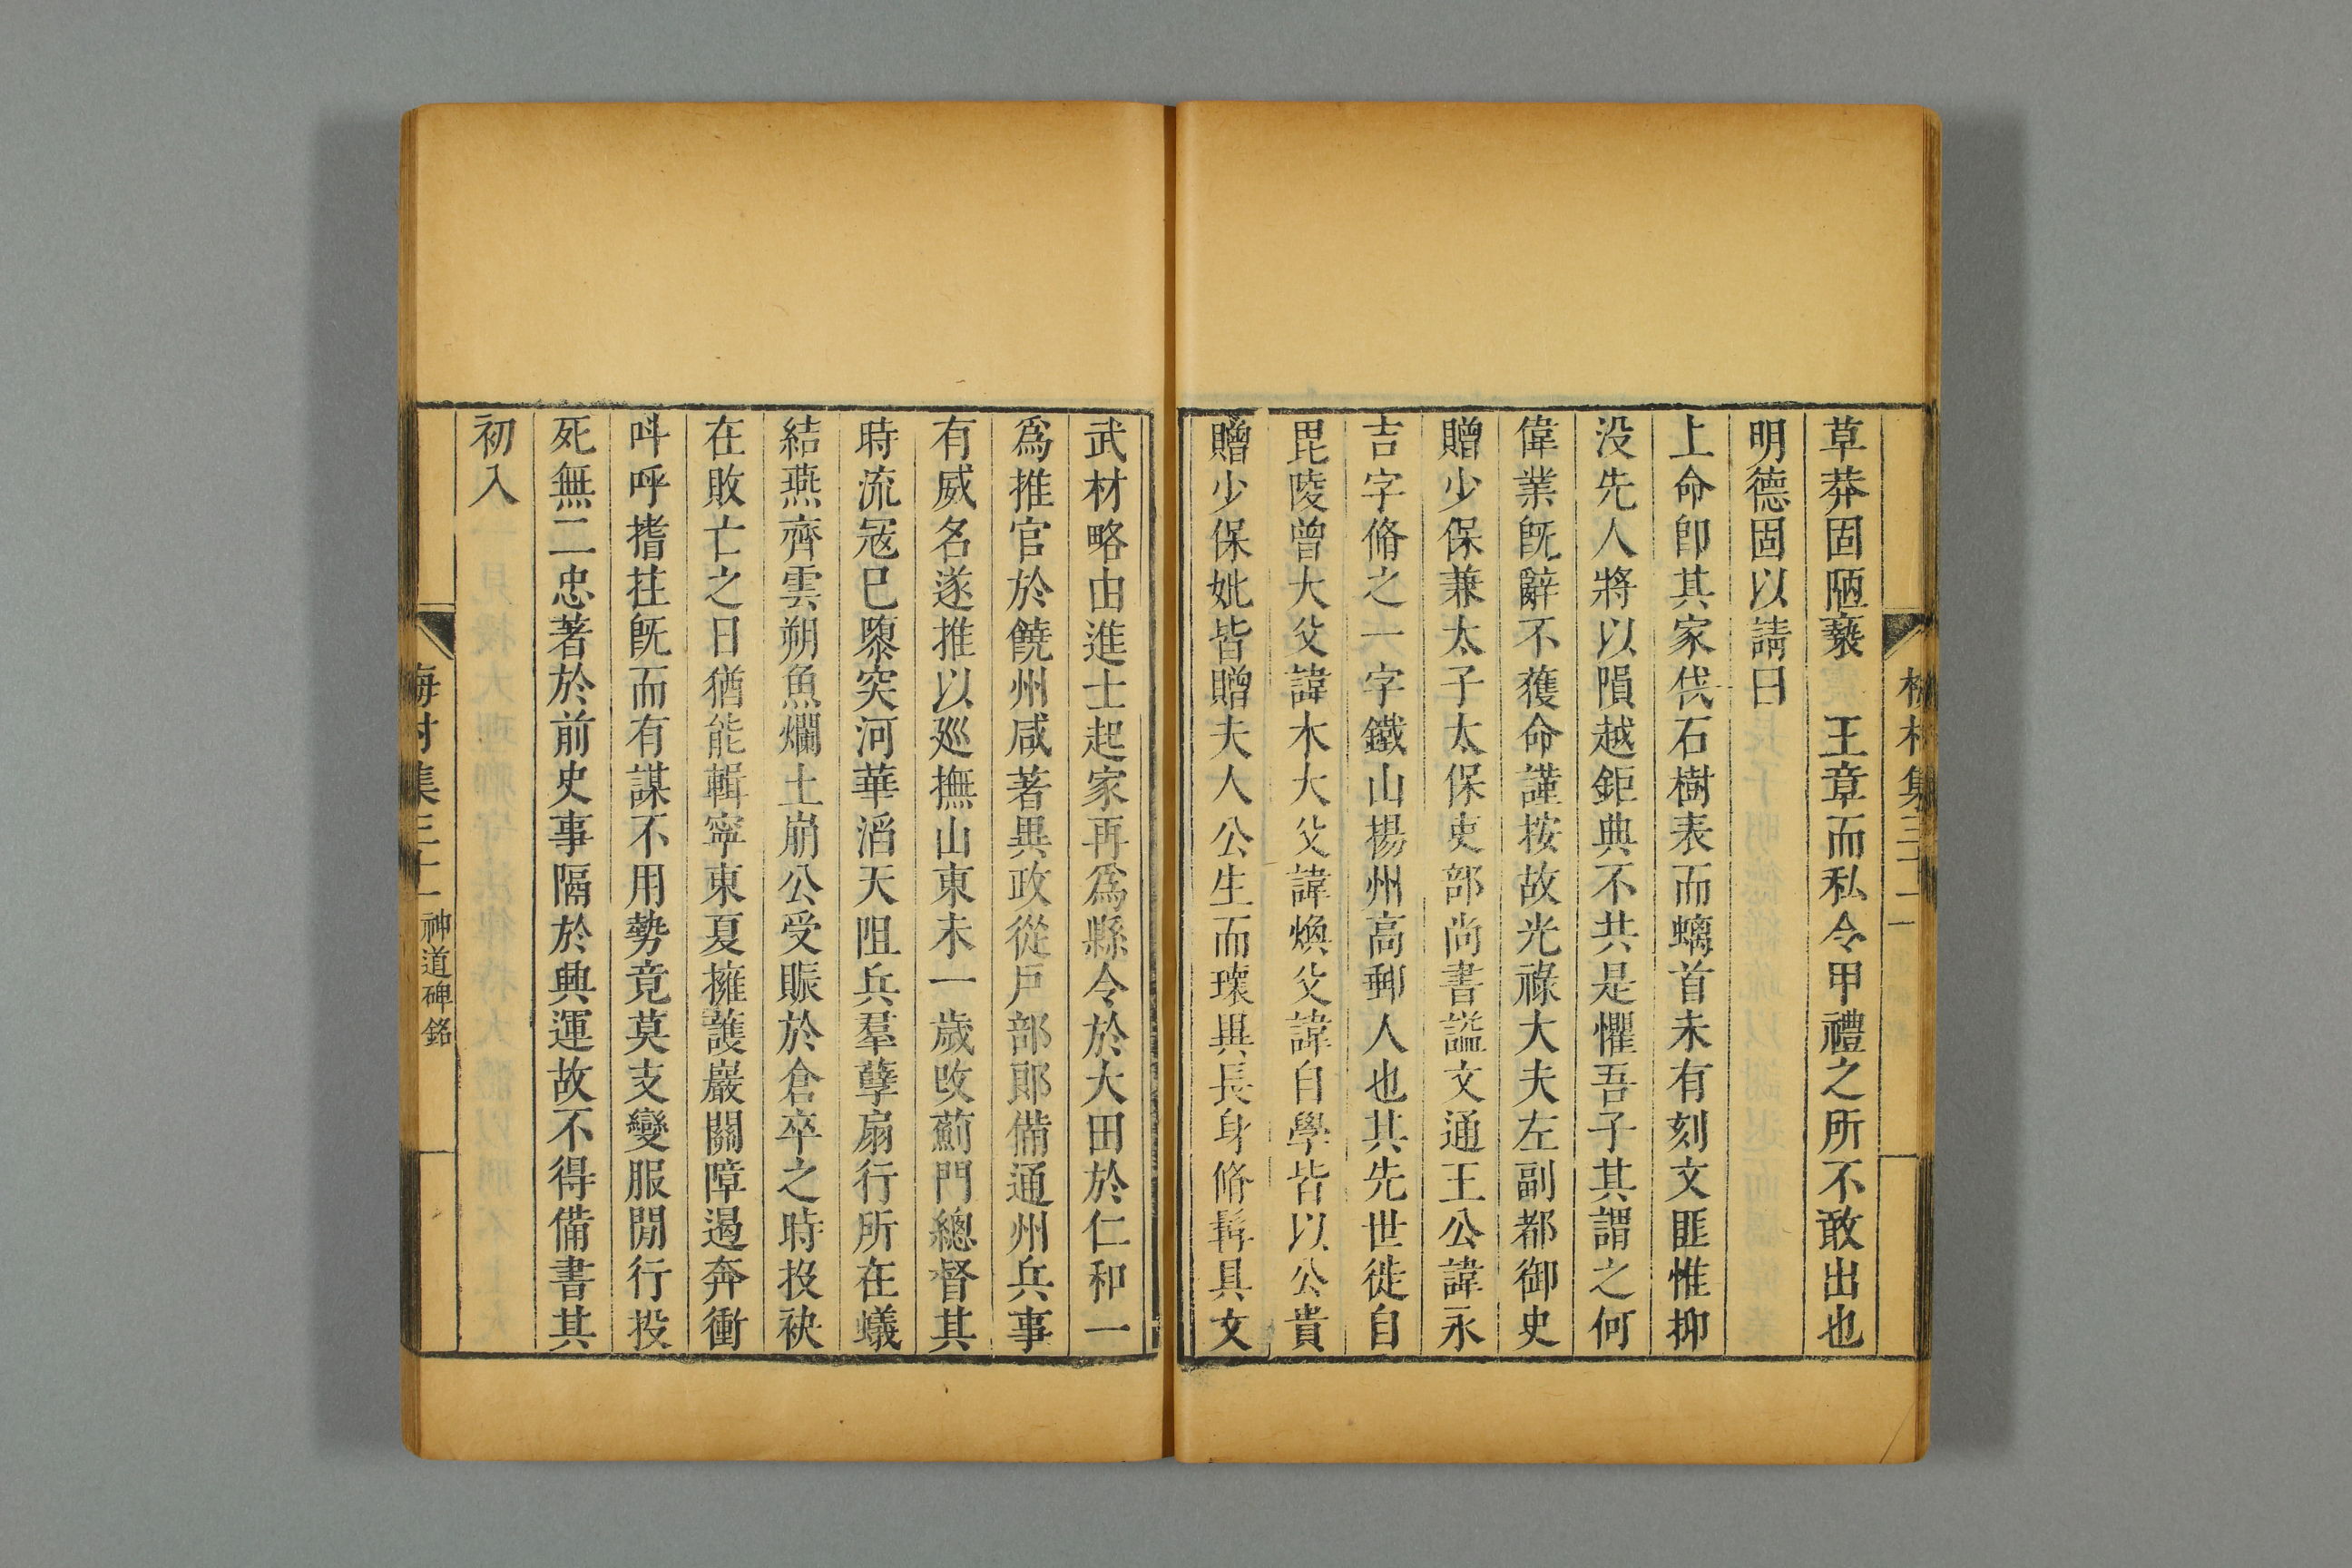 草莽固陋褻　王章而私令甲禮之所不敢出也
明德固以請曰
上命卽其家伐石樹表而螭首未有刻文匪惟抑
没先人將以隕越鉅典不共是懼吾子其謂之何
偉業旣辭不獲命謹按故光祿大夫左副都御史
贈少保兼太子太保吏部尚書謚文通王公諱永
吉字脩之一字鐵山揚州高郵人也其先世徙自
毘陵曾大父諱木大父諱煥父諱自學皆以公貴
贈少保妣皆贈夫人公生而瓌異長身脩髯具文
武材略由進士起家再爲縣令於大田於仁和一
爲推官於饒州咸著異政從戶部郞備通州兵事
有威名遂推以廵撫山東未一歲改薊門總督其
時流冦已隳突河華滔天阻兵羣孽扇行所在蟻
結燕齊雲朔魚爛土崩公受賑於倉卒之時投袂
在敗亡之日猶能輯寧東夏擁護嚴關障遏奔衝
呌呼搘拄旣而有謀不用勢竟莫支變服閒行投
死無二忠著於前史事隔於興運故不得備書其
初入
梅村集三十一
神道碑銘